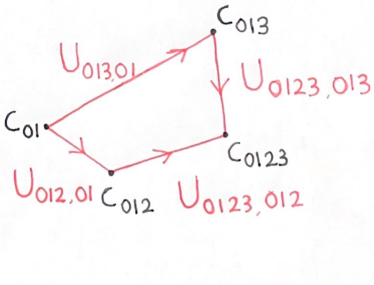 C013
U013,01
U0123,013
C01
C0123
U012,01 C012 U0123,012